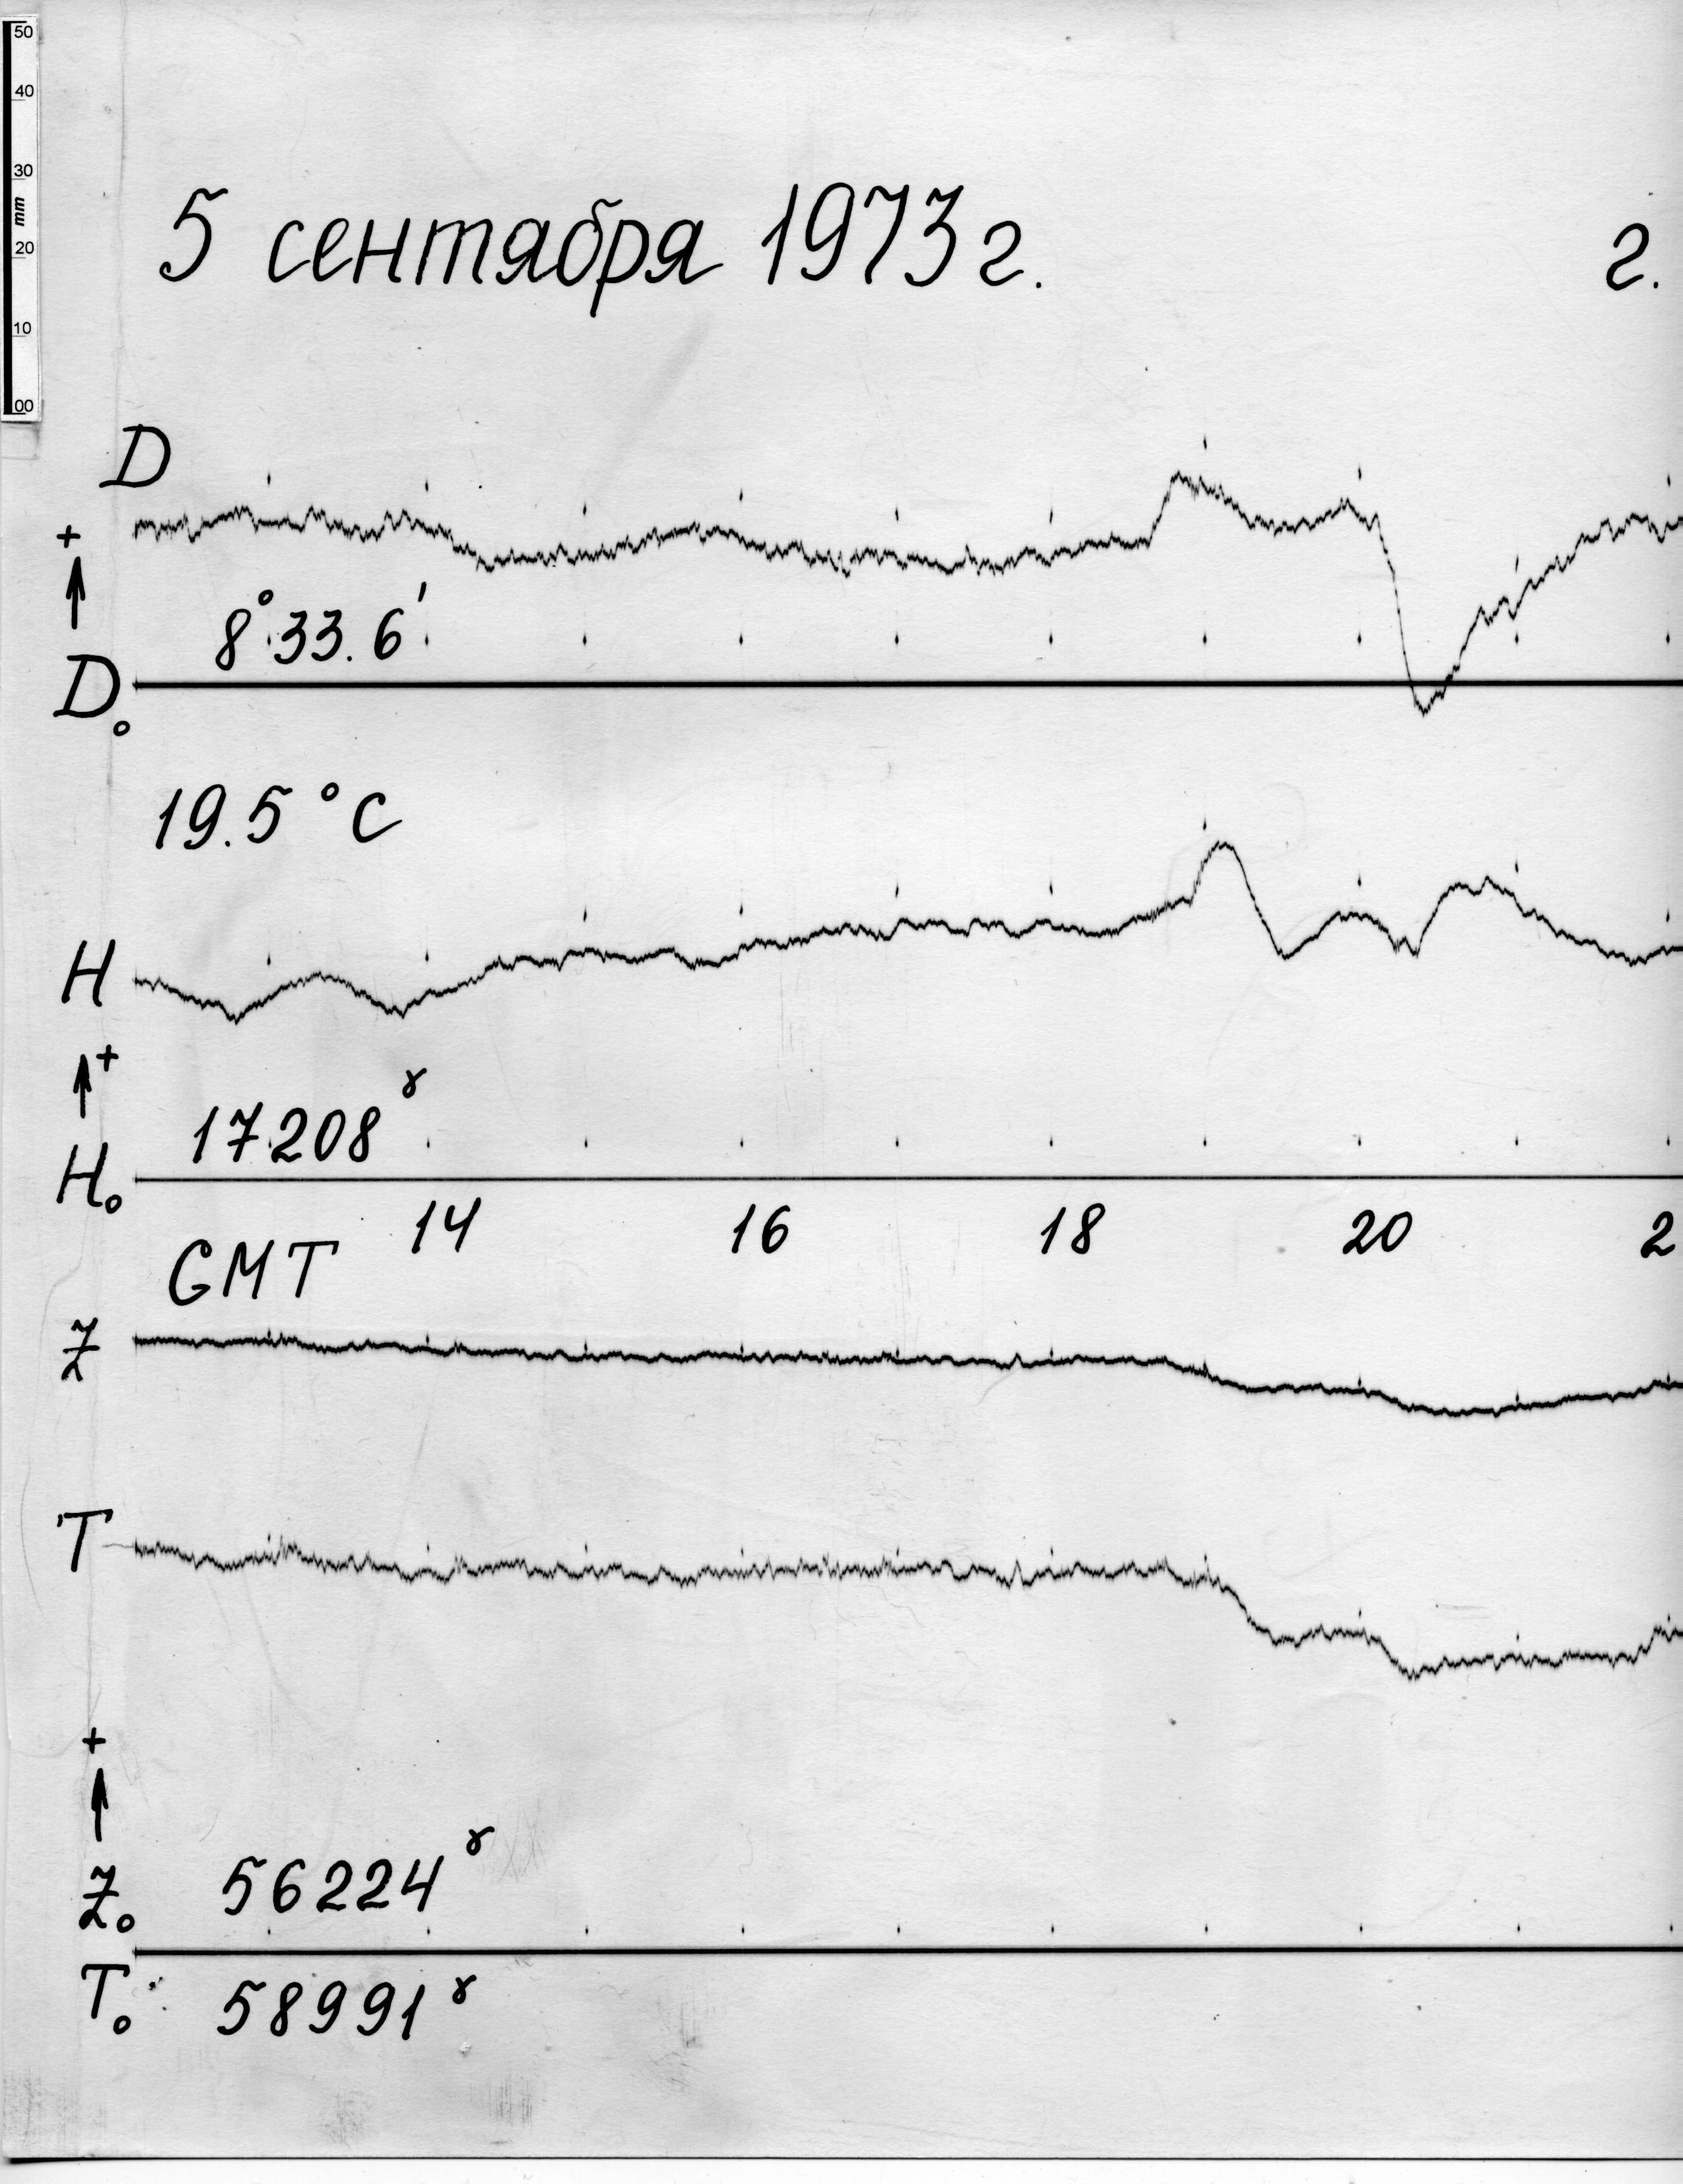 50
40
30
mm
20
10
00
5 сентября 1973 г. г.
D
+
8°33.6'
D₀
19.5 °C
H
+
17208 γ
H₀
14 16 18 20 2
GMT
Z
T
+
56224 γ
Z₀
T₀ 58991 γ